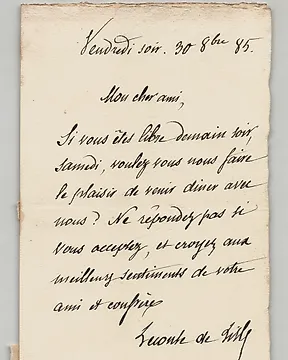 Vendredi soir. 30 8bre 85.
Mon cher ami,
Si vous êtes libre demain soir,
samedi, voulez vous nous faire
le plaisir de venir diner avec
nous? Ne répondez pas si
vous acceptez, et croyez aux
meilleurs sentiments de votre
ami et confrère
Leconte de Lisle